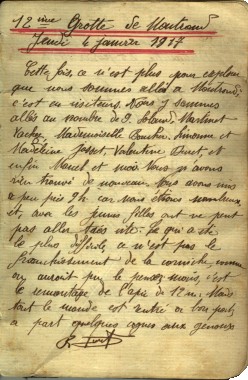 12ème Grotte de Montrond
Jeudi 4 janvier 1917
Cette fois, ce n'est plus pour explorer
que nous sommes allés à Montrond
c'est en visiteurs. Nous y sommes
allés au nombre de 9.
Vacher Mademoiselle Boucher, Simonne et
Madeleine Josset, Valentine et
enfin Marcel et moi. Nous n'avons
rien trouvé de nouveau. Nous avons mis
à peu près 9h car nous étions nombreux
et, avec les jeunes filles on ne peut
pas aller très vite. Ce qui a été
le plus difficile, ce n'est pas le
franchissement de la corniche comme
on aurait pu le penser mais, c'est
le remontage de l'à pic de 12m. Mais
tout le monde est rentré à bon port
à part quelques aux genoux